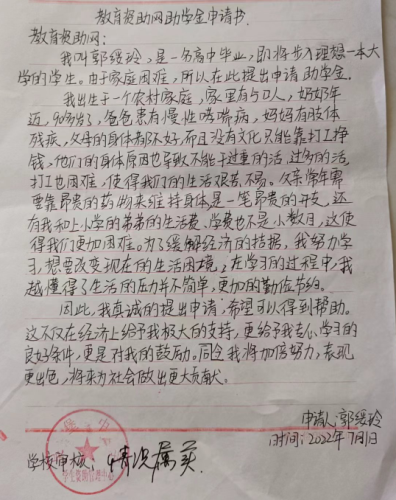 教育资助网助学金申请书.
教育资助网:
我叫郭缓玲,是一名高中毕业,即将步入理想一本大
学的学生。由于家庭困难,所以在此提出申请助学金.
我出生于一个农村家庭,家里有5口人,奶奶年
迈,90多岁了,爸爸患有慢性哮喘病,妈妈有肢体
残疾,父母的身体都不好,而且没有文化只能靠打工挣
钱,他们的身体原因也导致不能干过重的活,过多的活,
打工也困难,使得我们的生活艰苦不易。父亲常年需
要靠昂贵的药物来维持身体是一笔昂贵的开支,还
有我和上小学的弟弟的生活费、学费也不是小数目,这使
得我们更加困难。为了缓解经济的拮据,我努力学
习,想要改变现在的生活困境,在学习的过程中,我
越懂得了生活的压力并不简单,更加的勤俭节约。
因此,我真诚的提出申请,希望可以得到帮助。
这不仅在经济上给予我极大的支持,更给予我安心学习的
良好条件,更是对我的鼓励。同时我将加倍努力,表现
更出色,将来为社会做出更大贡献。
申请人:郭缓玲
时间:2022年7月1日
学校审核:情况属实